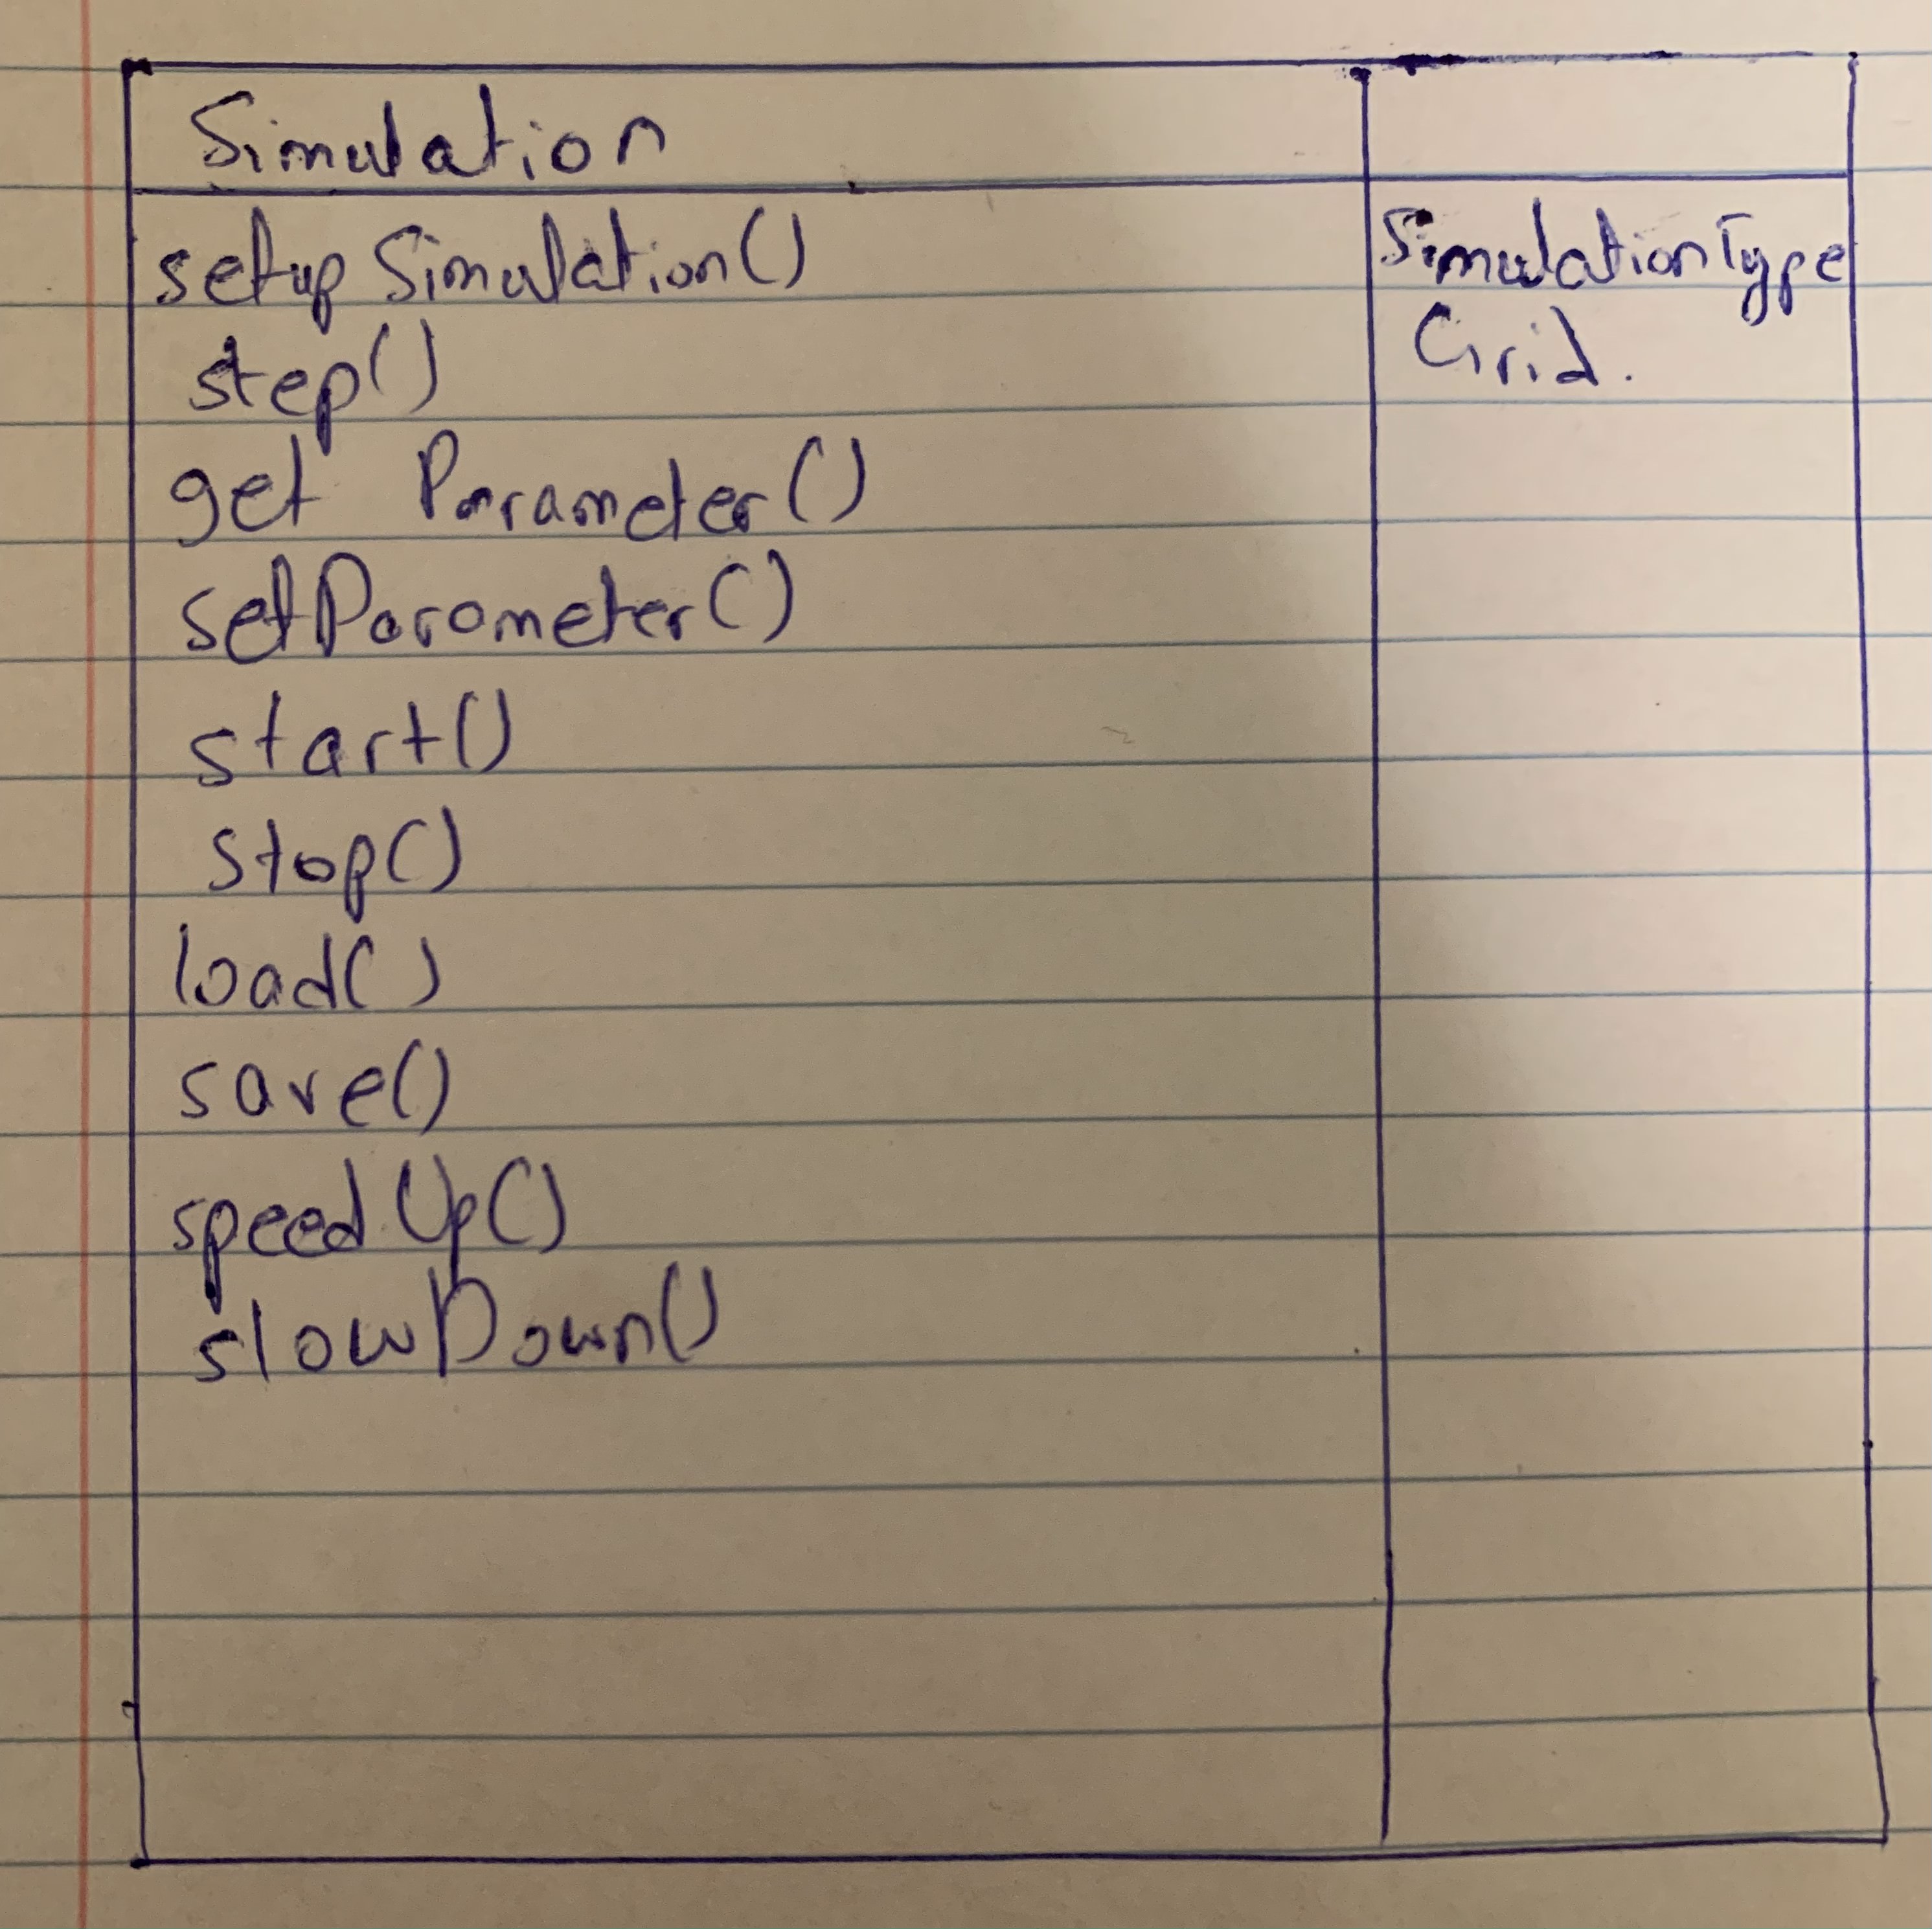 Simulation
setup Simulation()
step()
get Parameter()
setParameter()
start()
stop()
load()
save()
speed Up()
slowDown()
SimulationType
Grid.